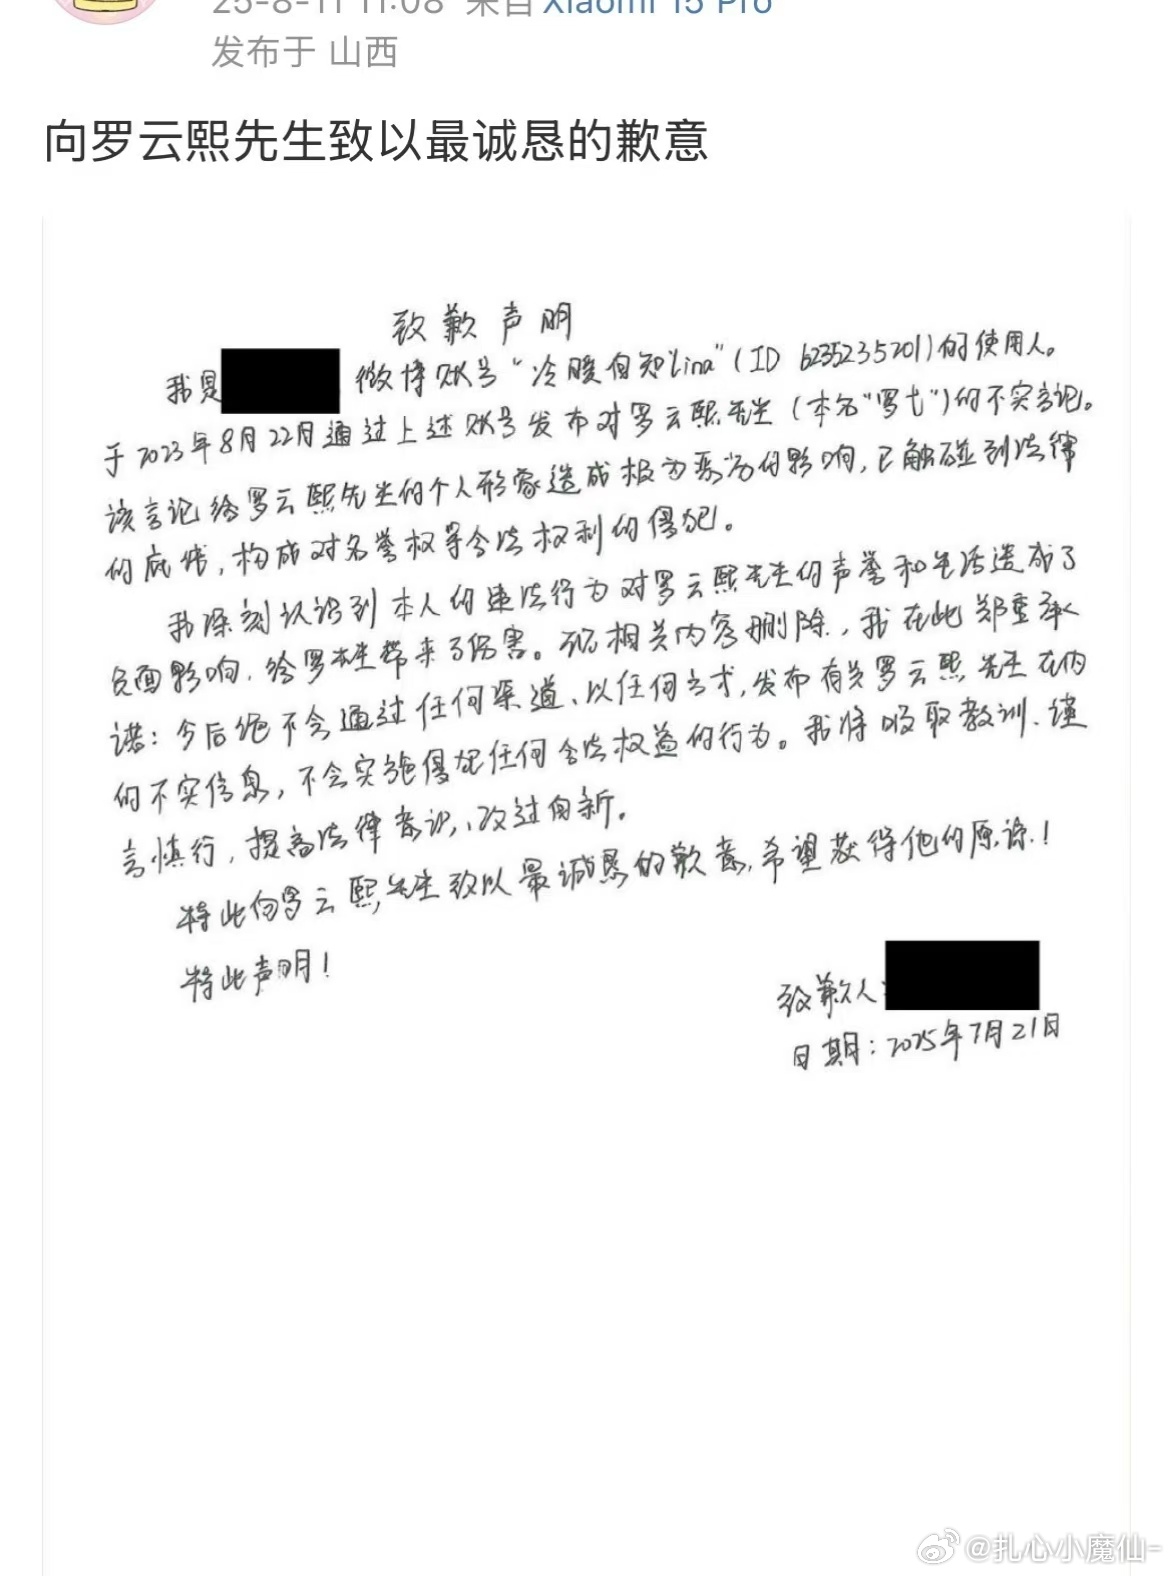 25-8-11 11:08 来自 Xiaomi 15 Pro
发布于 山西
向罗云熙先生致以最诚恳的歉意
致歉声明
我是 微博账号“冷暖自知lina”(ID 6235235201)的使用人。
于2023年8月22月通过上述账号发布对罗云熙先生(本名“罗弋”)的不实言论。
该言论给罗云熙先生的个人形象造成极为恶劣的影响,已触碰到法律
的底线,构成对名誉权等合法权利的侵犯。
我深刻认识到本人的违法行为对罗云熙先生的声誉和生活造成了
负面影响,给罗先生带来了伤害。现相关内容删除,我在此郑重承
诺:今后绝不会通过任何渠道、以任何方式,发布有关罗云熙先生在内
的不实信息,不会实施侵犯任何合法权益的行为。我将吸取教训、谨
言慎行,提高法律意识、改过自新。
特此向罗云熙先生致以最诚恳的歉意,希望获得他的原谅!
特此声明!
致歉人:
日期:2025年7月21日
@扎心小魔仙-